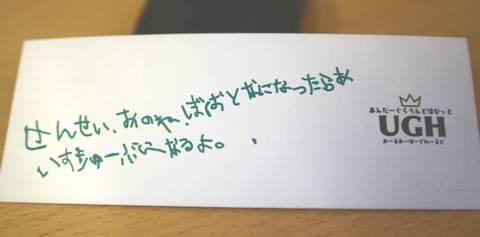 せんせい、あのね、ぼくおとなになったらあ
いすきゅーぶになるよ。
あんだーぐらうんどはびっと
UGH
おーるおーばーざわーるど